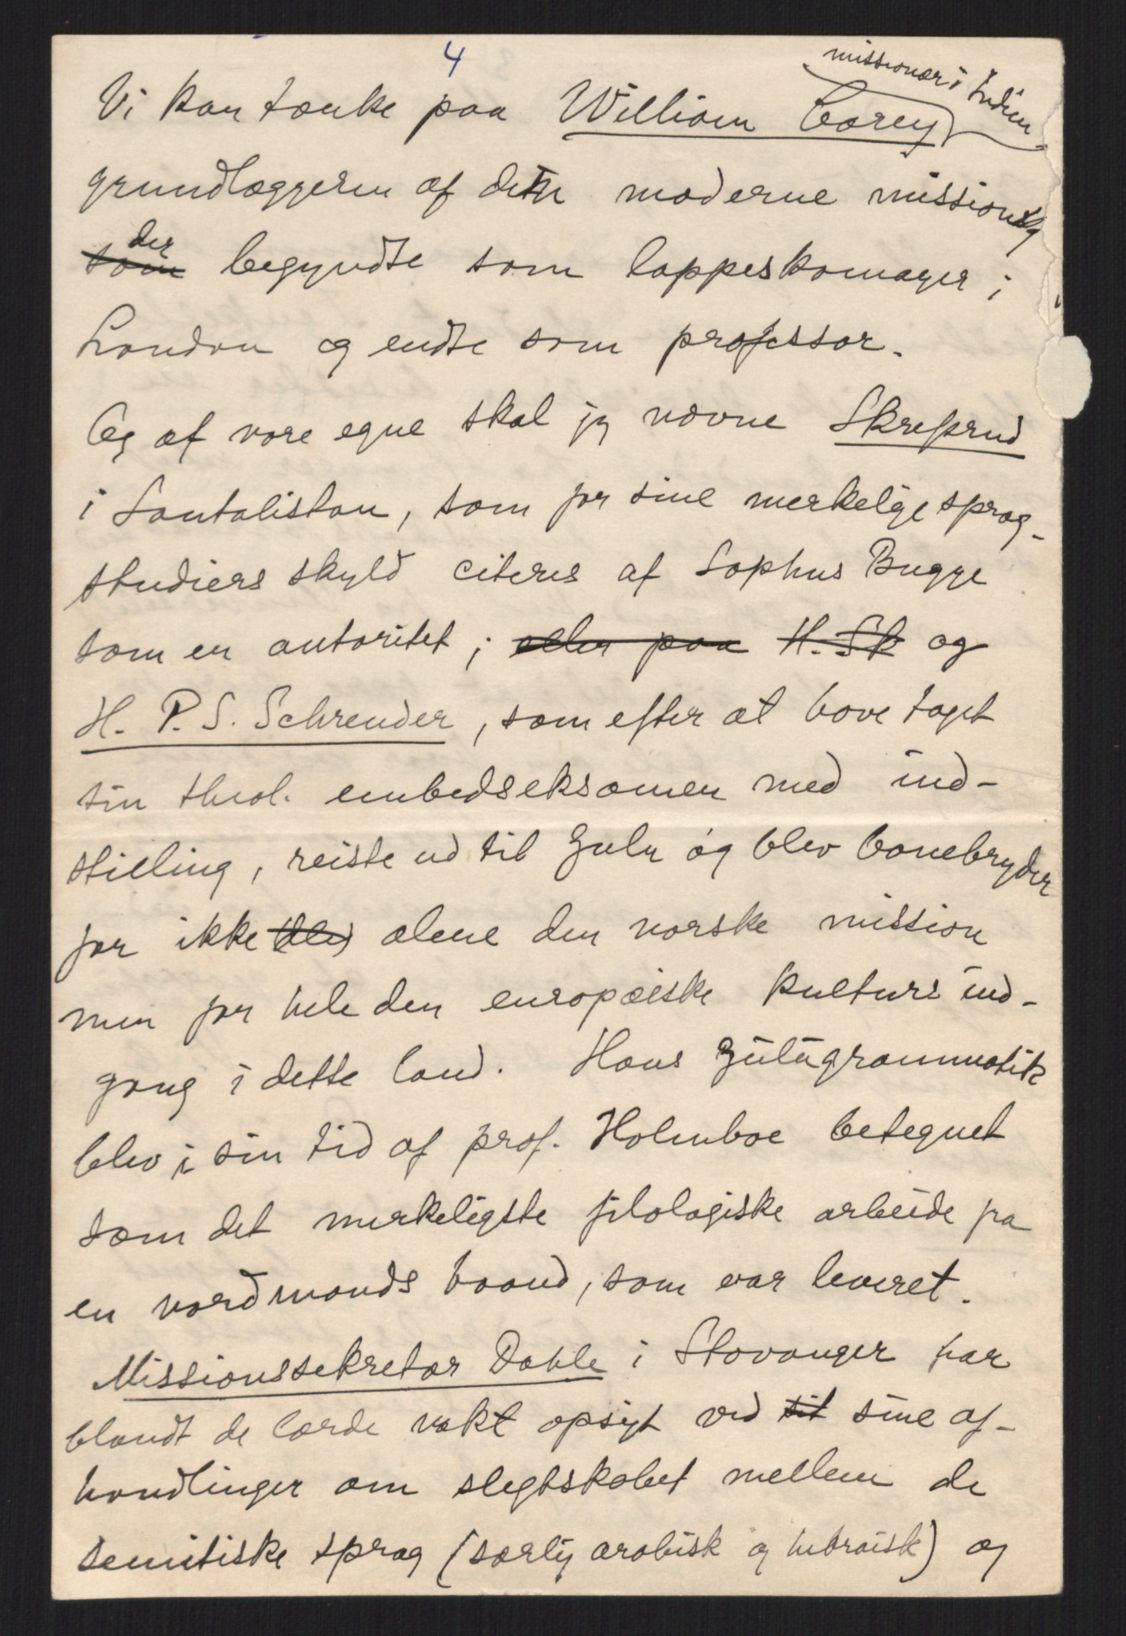 4
missionær i Indien
Vi kan tænke paa William Carey
grundlæggeren af den moderne mission,
der
som begyndte som lappeskomager i
London og endte som professor.
Og af vore egne skal jeg nævne Skrefsrud
i Santalistan, som for sine merkelige sprog-
studiers skyld citeres af Sophus Bugge
som en autoritet; eller paa H. Sk og
H. P. S. Schreuder, som efter at have taget
sin theol. embedseksamen med ind-
stilling, reiste ud til Zulu og blev banebryder
for ikke blev alene den norske mission
men for hele den europæiske kulturs ind-
gang i dette land. Hans Zulugrammatik
blev i sin tid af prof. Holmboe betegnet
som det merkeligste filologiske arbeide fra
en nordmands haand, som var leveret.
Missionssekretær Dahle i Stavanger har
blandt de lærde vakt opsigt ved sit sine af-
handlinger om slegtskabet mellem de
semitiske sprog (særlig arabisk og hebraisk) og